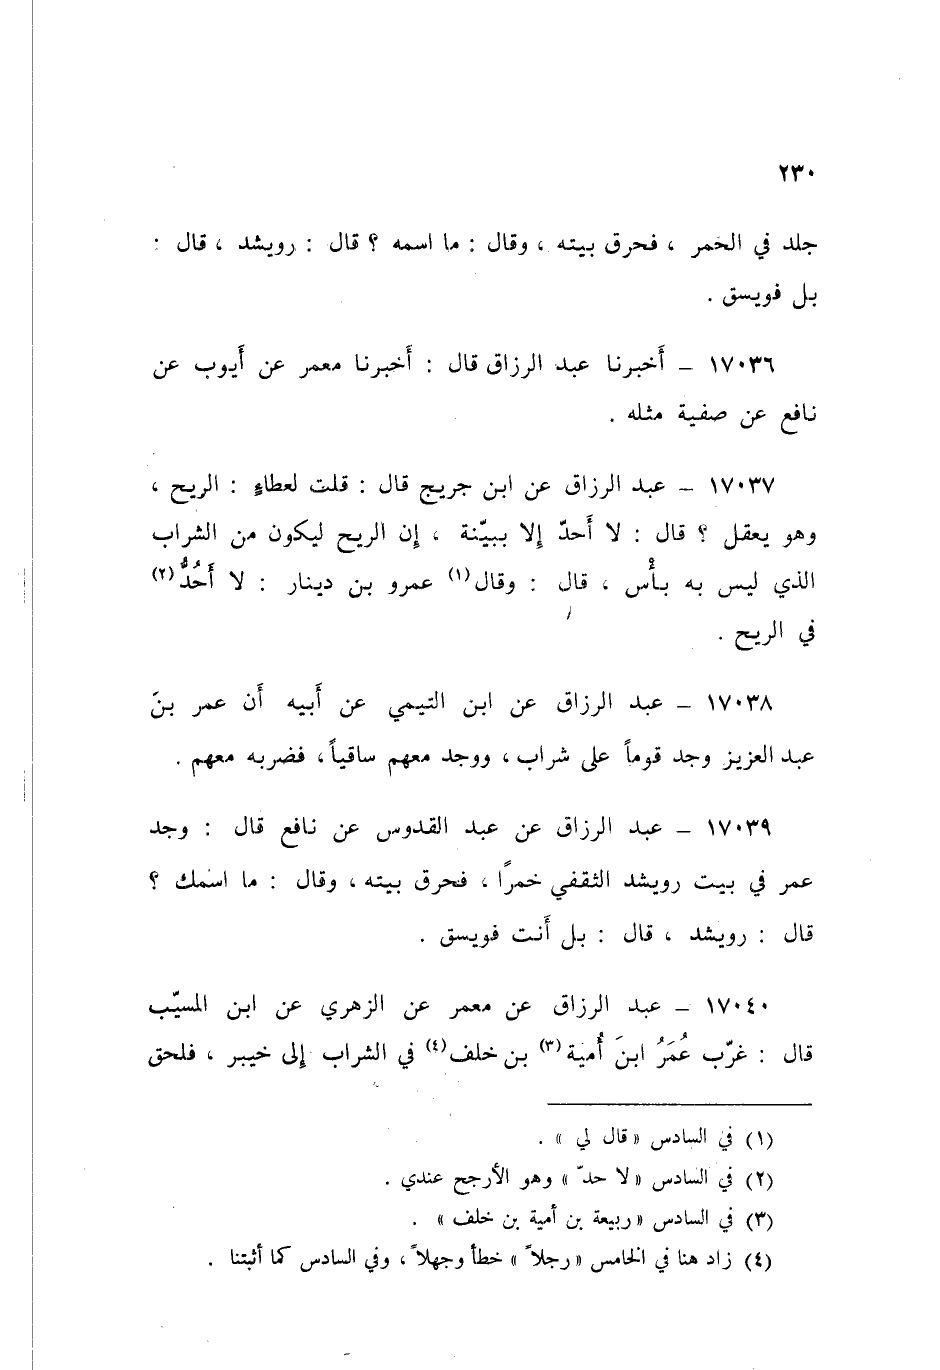 ٢٣٠
جلد في الخمر ، فحرق بيته ، وقال : ما اسمه ؟ قال : رويشد ، قال :
بل فويسق .
١٧٠٣٦ ـ أَخبرنا عبد الرزاق قال : أَخبرنا معمر عن أَيوب عن
نافع عن صفية مثله .
١٧٠٣٧ ـ عبد الرزاق عن ابن جريج قال : قلت لعطاءٍ : الريح ،
وهو يعقل ؟ قال : لا أَحدّ إلا ببيّنة ، إن الريح ليكون من الشراب
الذي ليس به بأْس ، قال : وقال(١) عمرو بن دينار : لا أَحُدُّ(٢)
في الريح .
١٧٠٣٨ ـ عبد الرزاق عن ابن التيمي عن أَبيه أَن عمر بنَ
عبد العزيز وجد قوماً على شراب ، ووجد معهم ساقياً ، فضربه معهم .
١٧٠٣٩ ـ عبد الرزاق عن عبد القدوس عن نافع قال : وجد
عمر في بيت رويشد الثقفي خمرًا ، فحرق بيته ، وقال : ما اسمك ؟
قال : رويشد ، قال : بل أَنت فويسق .
١٧٠٤٠ ـ عبد الرزاق عن معمر عن الزهري عن ابن المسيّب
قال : غرّب عُمَرُ ابنَ أُمية(٣) بن خلف(٤) في الشراب إلى خيبر ، فلحق
(١) في السادس « قال لي » .
(٢) في السادس « لا حدّ » وهو الأرجح عندي .
(٣) في السادس « ربيعة بن أمية بن خلف » .
(٤) زاد هنا في الخامس « رجلاً » خطأ وجهلاً ، وفي السادس كما أثبتنا .